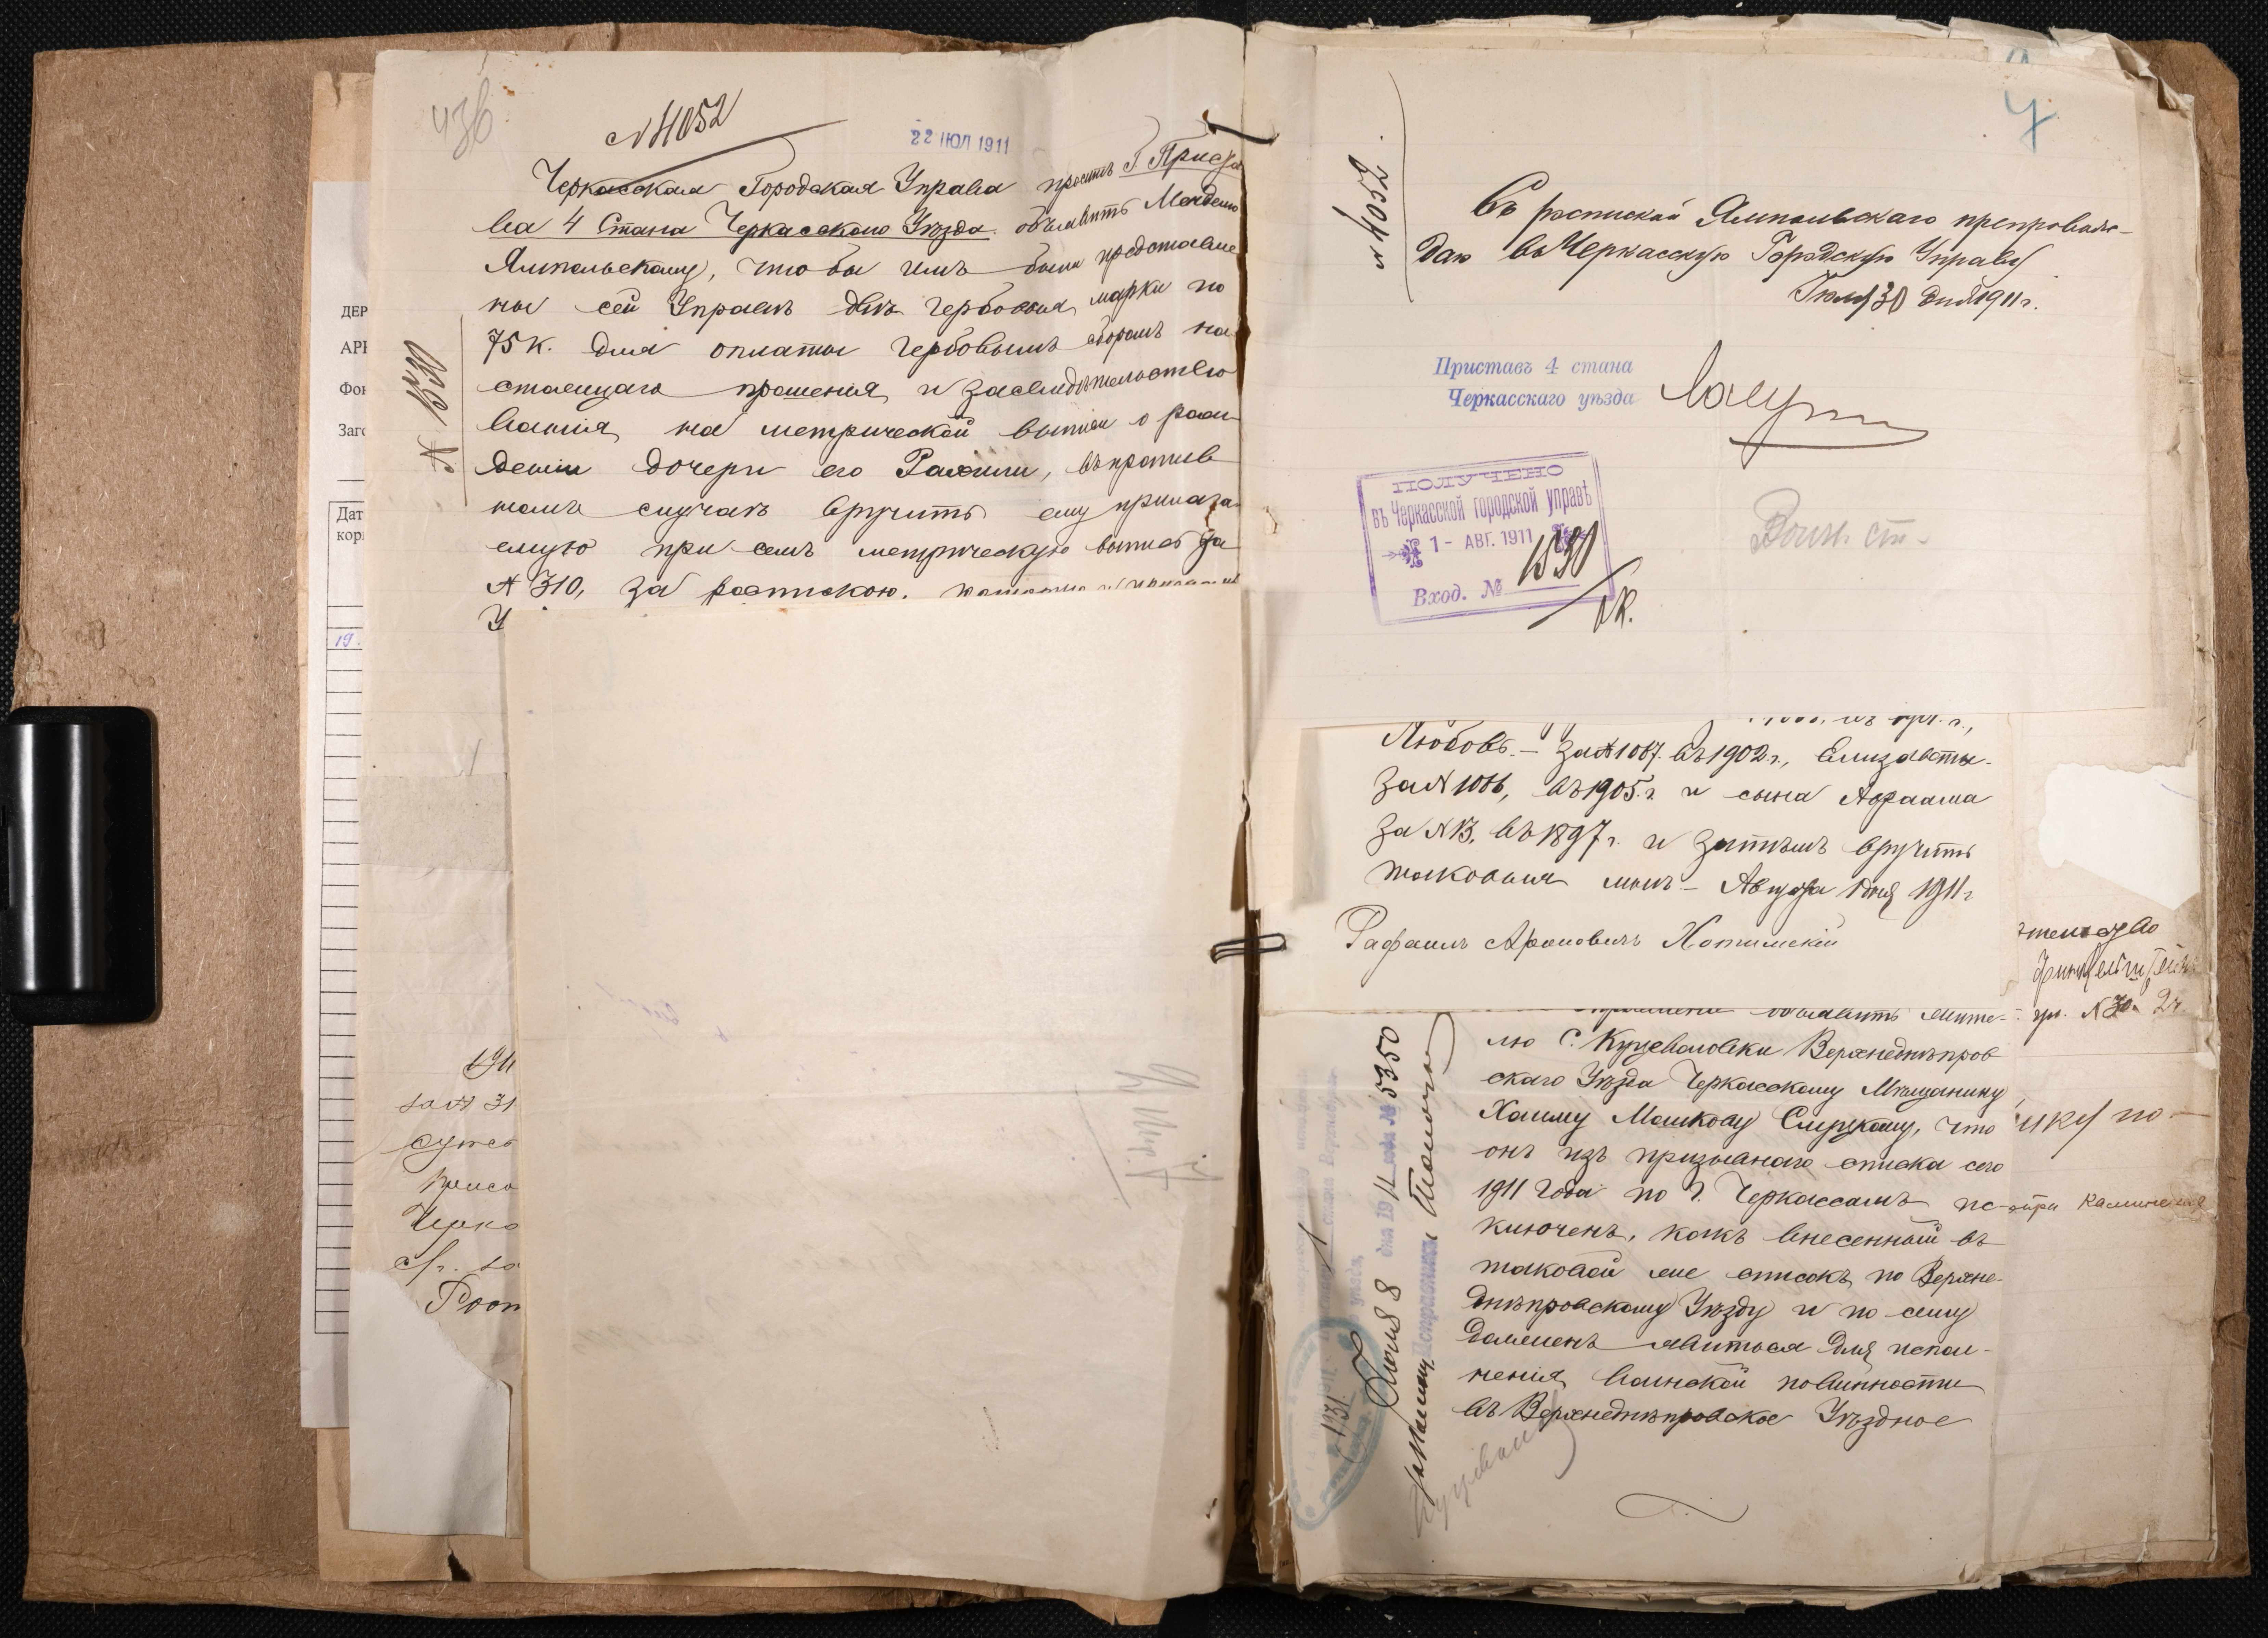 436
№ 4052
22 ІЮЛ 1911
Черкасская Городская Управа проситъ Г. Приста
ва 4 Стана Черкасскаго Уѣзда объявить Менделю
Ямпольскому, чтобы имъ были представле
ны сей Управѣ двѣ гербовыя марки по
75 к. для оплаты гербовымъ сборомъ на
стоящаго прошенія и засвидѣтельство
ванія на метрической выписи о рож
деніи дочери его Рахили, въ против
номъ случаѣ вручить ему прилага
емую при семъ метрическую выпись за
№ 310, за роспискою.
У
№ 1530
ДЕР
АРХ
Фон
Заго
Дат
кор
19.
1911
за № 31
Черка
7
№ 4052.
Съ роспиской Ямпольскаго препровож-
даю въ Черкасскую Городскую Управу
Іюля 30 дня 1911 г.
Приставъ 4 стана
Черкасскаго уѣзда
ПОЛУЧЕНО
въ Черкасской городской управѣ
1 - АВГ. 1911
Вход. № 1530
Воин. ст.
Любовь. – за № 1087. въ 1902 г., Елизаветы.
за № 1086, въ 1905 г. и сына Абрама
за № 13, въ 1897 г. и затѣмъ вручить
таковыя мнѣ – Августа 1 дня 1911 г
Рафаилъ Ароновичъ Хотимскій
объявить жите-
лю С. Куцеволовки Верхнеднѣпров
скаго Уѣзда Черкасскому Мѣщанину
Хаиму Мошкову Смускому, что
онъ изъ призывнаго списка сего
1911 года по г. Черкассамъ ис-
ключенъ, какъ внесенный въ
таковой же списокъ по Верхне-
днѣпровскому Уѣзду и по сему
долженъ явиться для испол-
ненія воинской повинности
въ Верхнеднѣпровское Уѣздное
5350
1731